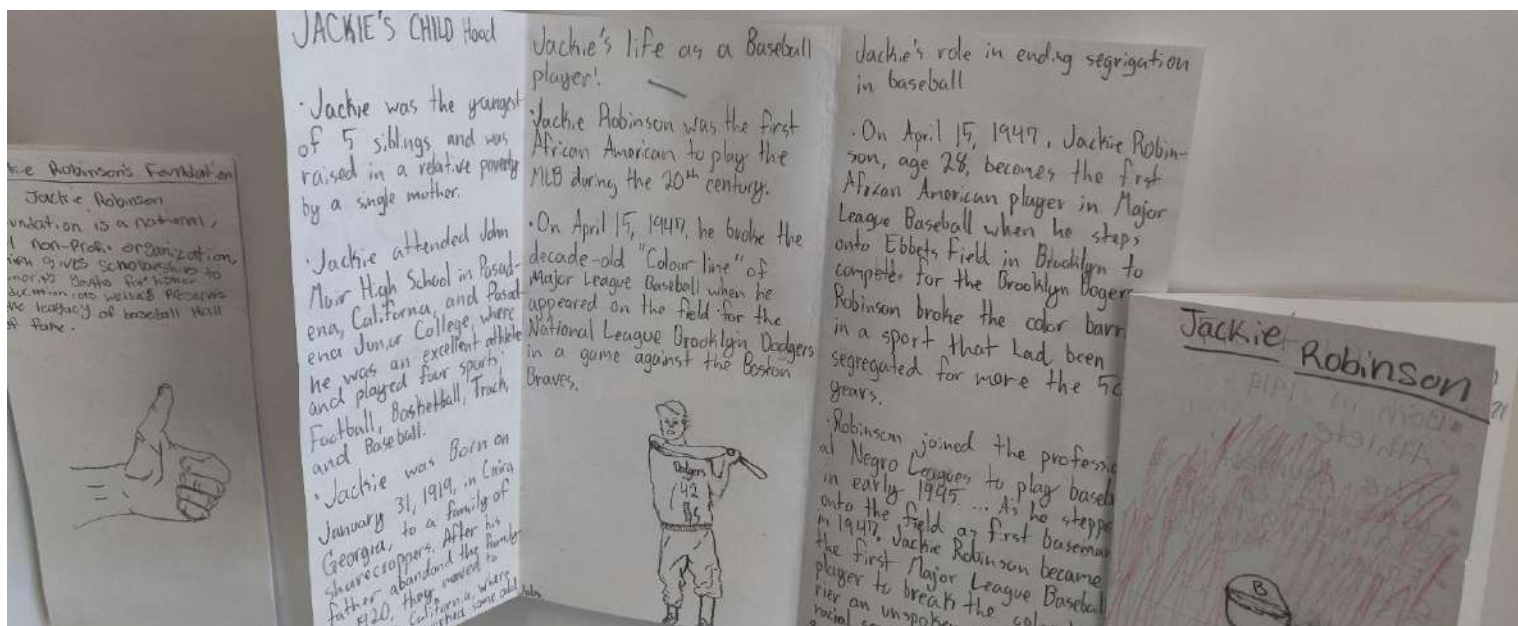 Jackie Robinson's Foundation
Jackie Robinson
undation is a national,
non-Profit organization,
gives scholarships to
youths for higher
as well as Preserves
the leagacy of baseball Hall
of fame.
JACKIE'S CHILD Hood
·Jackie was the youngest
of 5 siblings and was
raised in a relative poverty
by a single mother.
·Jackie attended John
Muir High School in Pasad-
ena, California, and Pasad-
ena Junior College, where
he was an excellent athlete
and played four sports:
Football, Basketball, Track,
and Baseball.
·Jackie was Born on
January 31, 1919, in Cairo,
Georgia, to a family of
sharecroppers. After his
father abandond the family
in 1920, they moved to
California, where
some odd Jobs
Jackie's life as a Baseball
player!
·Jackie Robinson was the first
African American to play the
MLB during the 20th century.
·On April 15, 1947, he broke the
decade-old "Colour line" of
Major League Baseball when he
appeared on the field for the
National League Brooklyn Dodgers
in a game against the Boston
Braves.
Dodgers
42
Jackie's role in ending segrigation
in baseball
·On April 15, 1947, Jackie Robin-
son, age 28, becomes the first
African American player in Major
League Baseball when he steps
onto Ebbets Field in Brooklyn to
compete for the Brooklyn Dogers
Robinson broke the color barr
in a sport that had been
segregated for more the 50
years.
·Robinson joined the professi
al Negro Leagues to play baseba
in early 1945. ... As he steppe
onto the field as first baseman
in 1947, Jackie Robinson became
the first Major League Baseball
player to break the color
rier an unspoken
racial
Jackie
Robinson
Born in 1919
Athlete
B